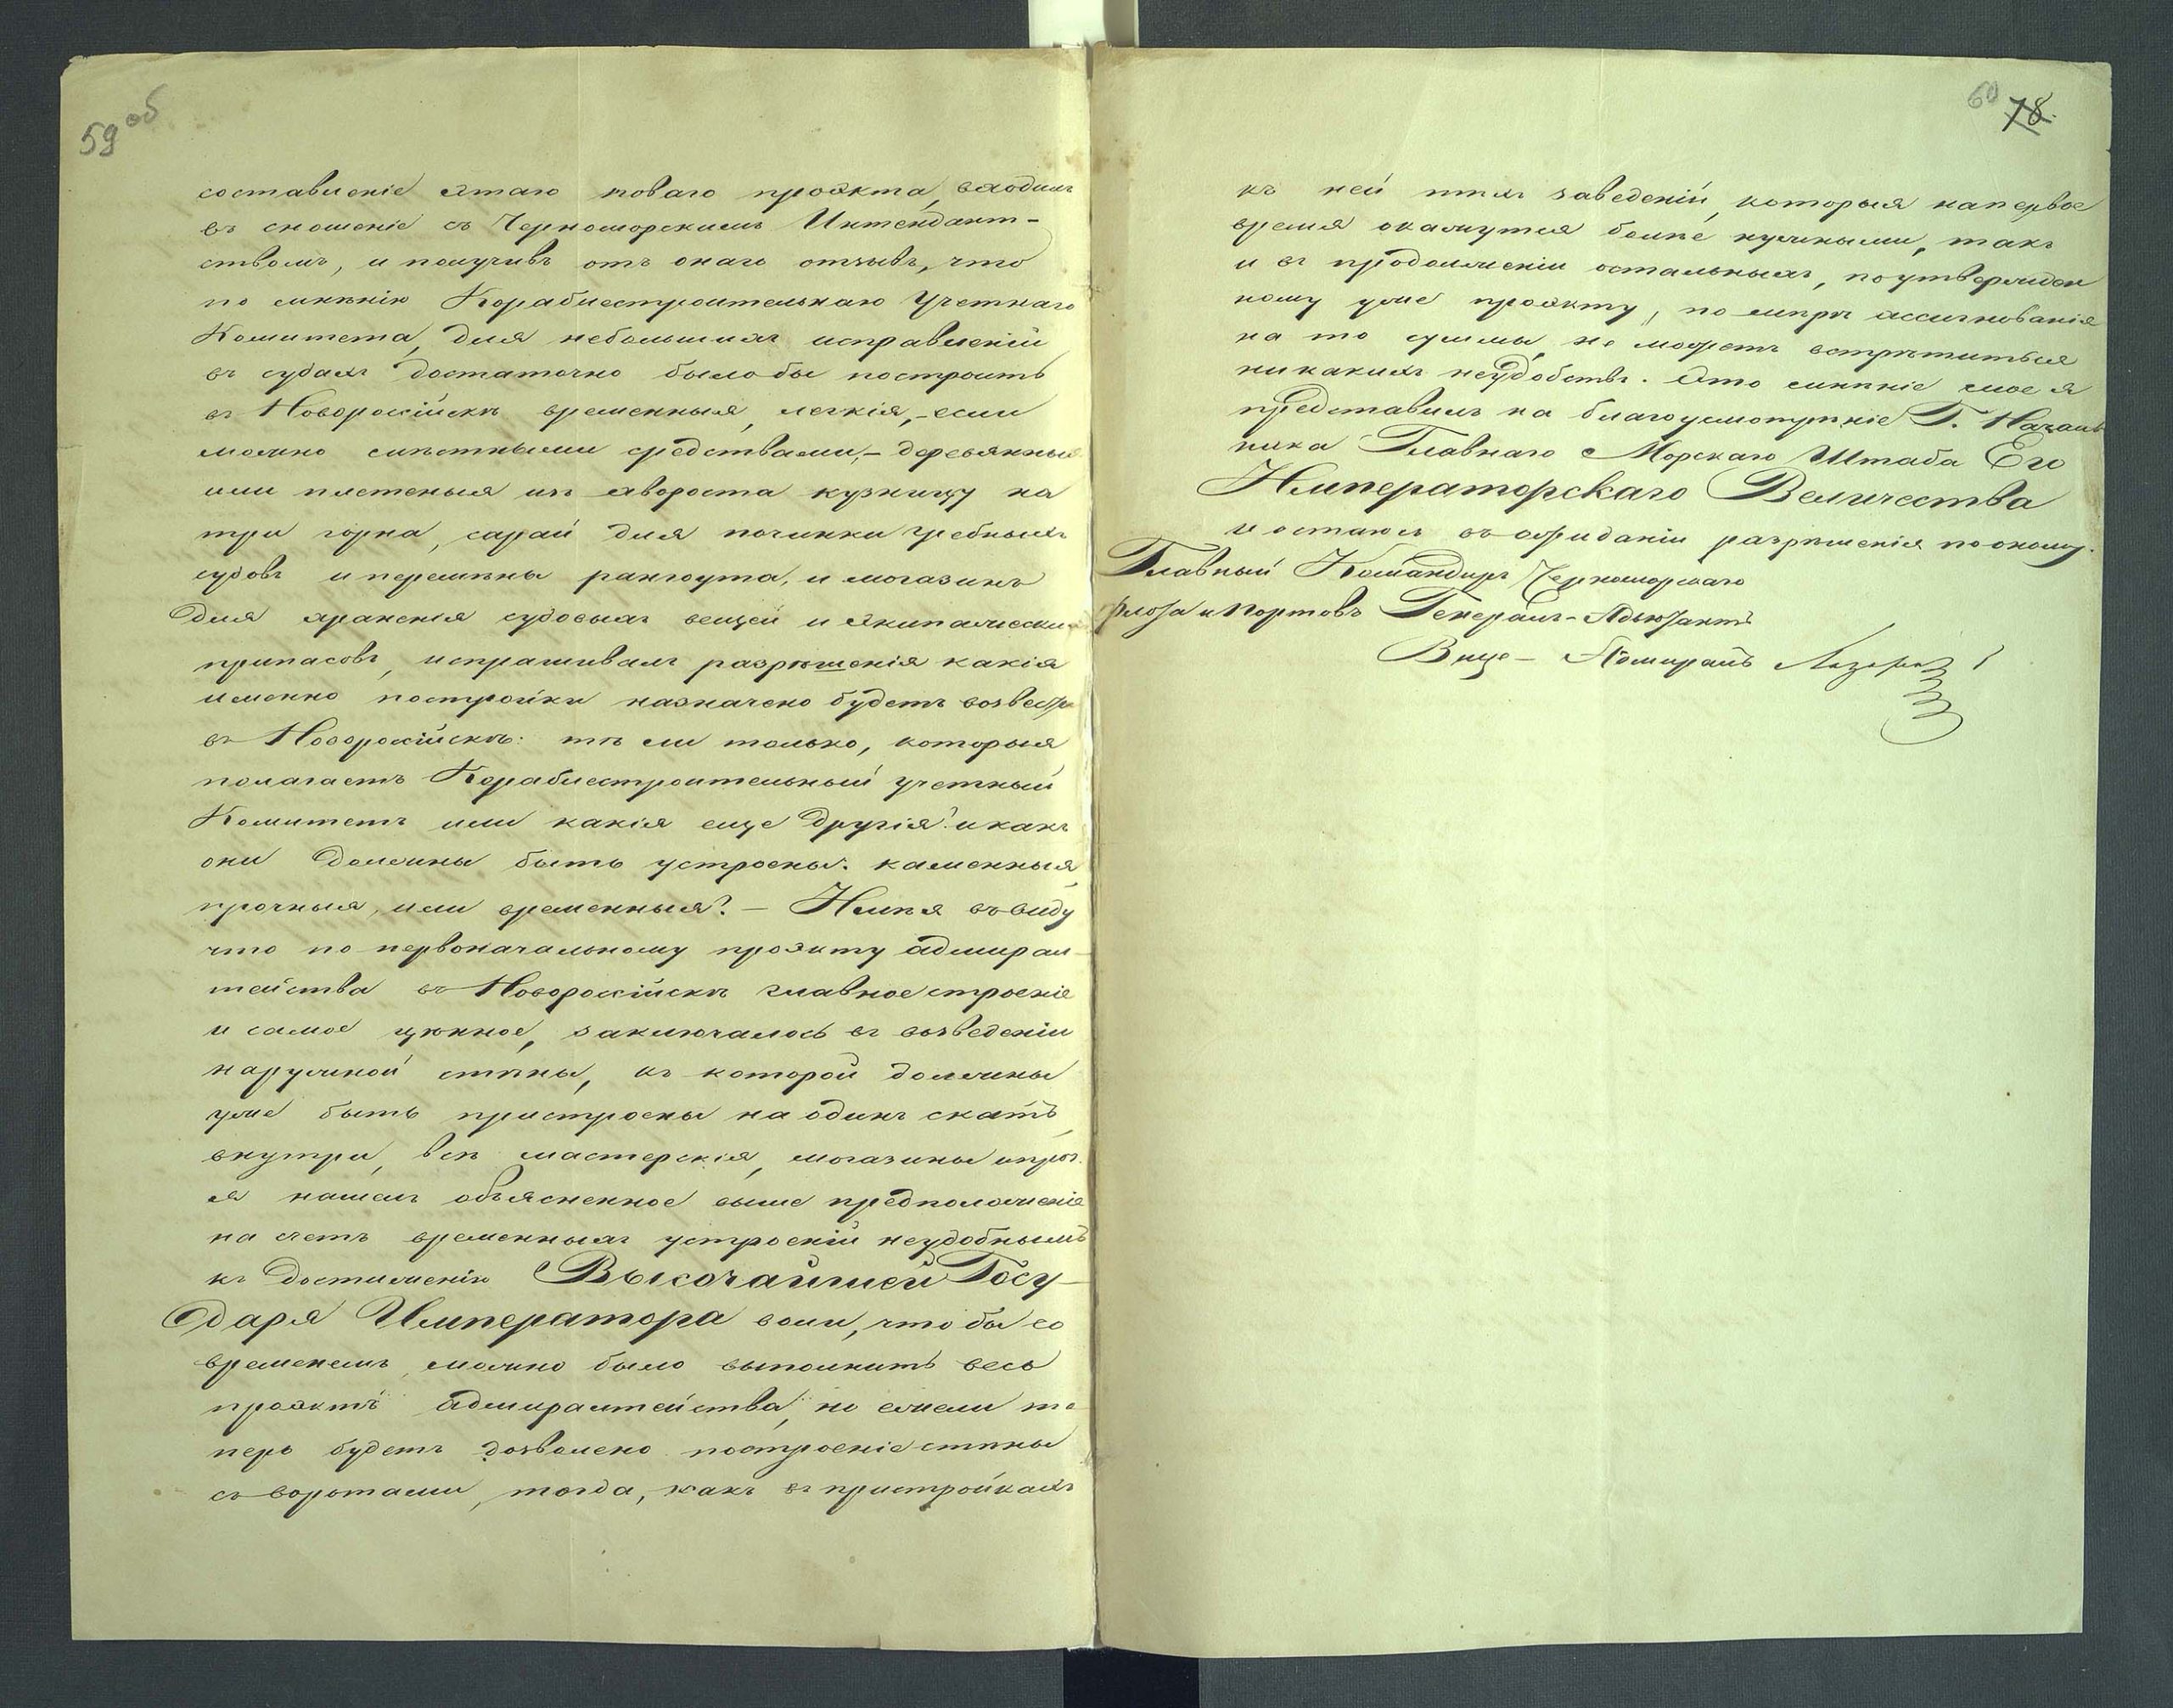 59 об
составленіе этаго новаго проэкта, входилъ
въ сношеніе съ Черноморскимъ Интендант-
ствомъ, и получивъ отъ онаго отзывъ, что
по мнѣнію Кораблестроительнаго Учетнаго
Комитета, для небольшихъ исправленій
въ судахъ достаточно было бы построить
въ Новороссійскѣ временныя, легкія, - если
можно смѣтными средствами, - деревянныя
или плетеныя изъ хвороста кузницу на
три горна, сарай для починки гребныхъ
судовъ и перемѣны рангоута, и магазинъ
для храненія судовыхъ вещей и экипажескихъ
припасовъ, испрашивалъ разрѣшенія какія
именно постройки назначено будетъ возвести
въ Новороссійскѣ: тѣ ли только, которыя
полагаетъ Кораблестроительный учетный
Комитетъ или какія еще другія? и какъ
они должны быть устроены: каменныя,
прочныя, или временныя? - Имѣя въ виду
что по первоначальному проэкту адмирал-
тейства въ Новороссійскѣ главное строеніе
и самое цѣнное, заключалось въ возведеніи
наружной стѣны, къ которой должны
уже быть пристроены на одинъ скатъ,
внутри, всѣ мастерскія, магазины и проч.
я нашелъ объясненное выше предположеніе
на счетъ временныхъ устроеній неудобнымъ
къ достиженію Высочайшей Госу-
даря Императора воли, что бы со
временемъ, можно было выполнить весь
проэктъ адмиралтейства, но ежели те
перь будетъ дозволено построеніе стѣны
съ воротами, тогда, какъ въ пристройкахъ
60 78.
къ ней тѣхъ заведеній, которыя на первое
время окажутся болѣе нужными, такъ
и въ продолженіи остальныхъ, по утвержден
ному уже проэкту, по мѣрѣ ассигнованія
на то суммы, не можетъ встрѣтиться
никакихъ неудобствъ. Это мнѣніе мое я
представилъ на благоусмотрѣніе Г. Началь
ника Главнаго Морскаго Штаба Его
Императорскаго Величества
и остаюсь въ ожиданіи разрѣшенія по оному.
Главный Командиръ Черноморскаго
флота и портовъ Генералъ-Адъютантъ
Вице-Адмиралъ Лазаревъ